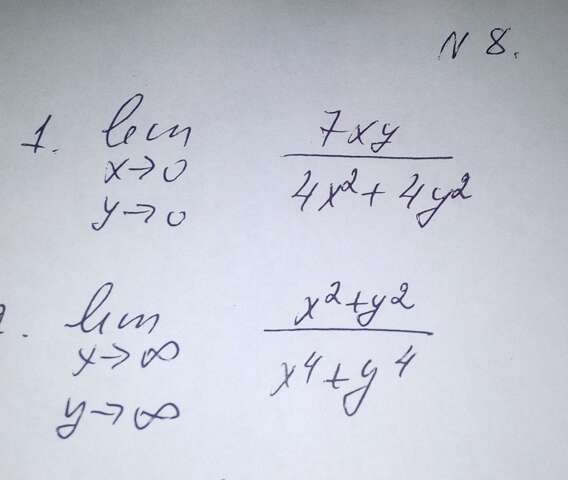 N 8.
1. lim x→0 y→0 7xy / 4x² + 4y²
2. lim x→∞ y→∞ x² + y² / x⁴ + y⁴